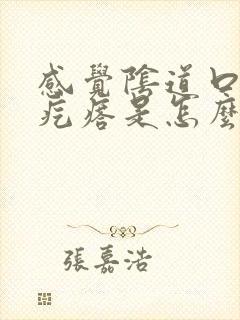 感覺陰道口
疙瘩是怎麼
張嘉浩